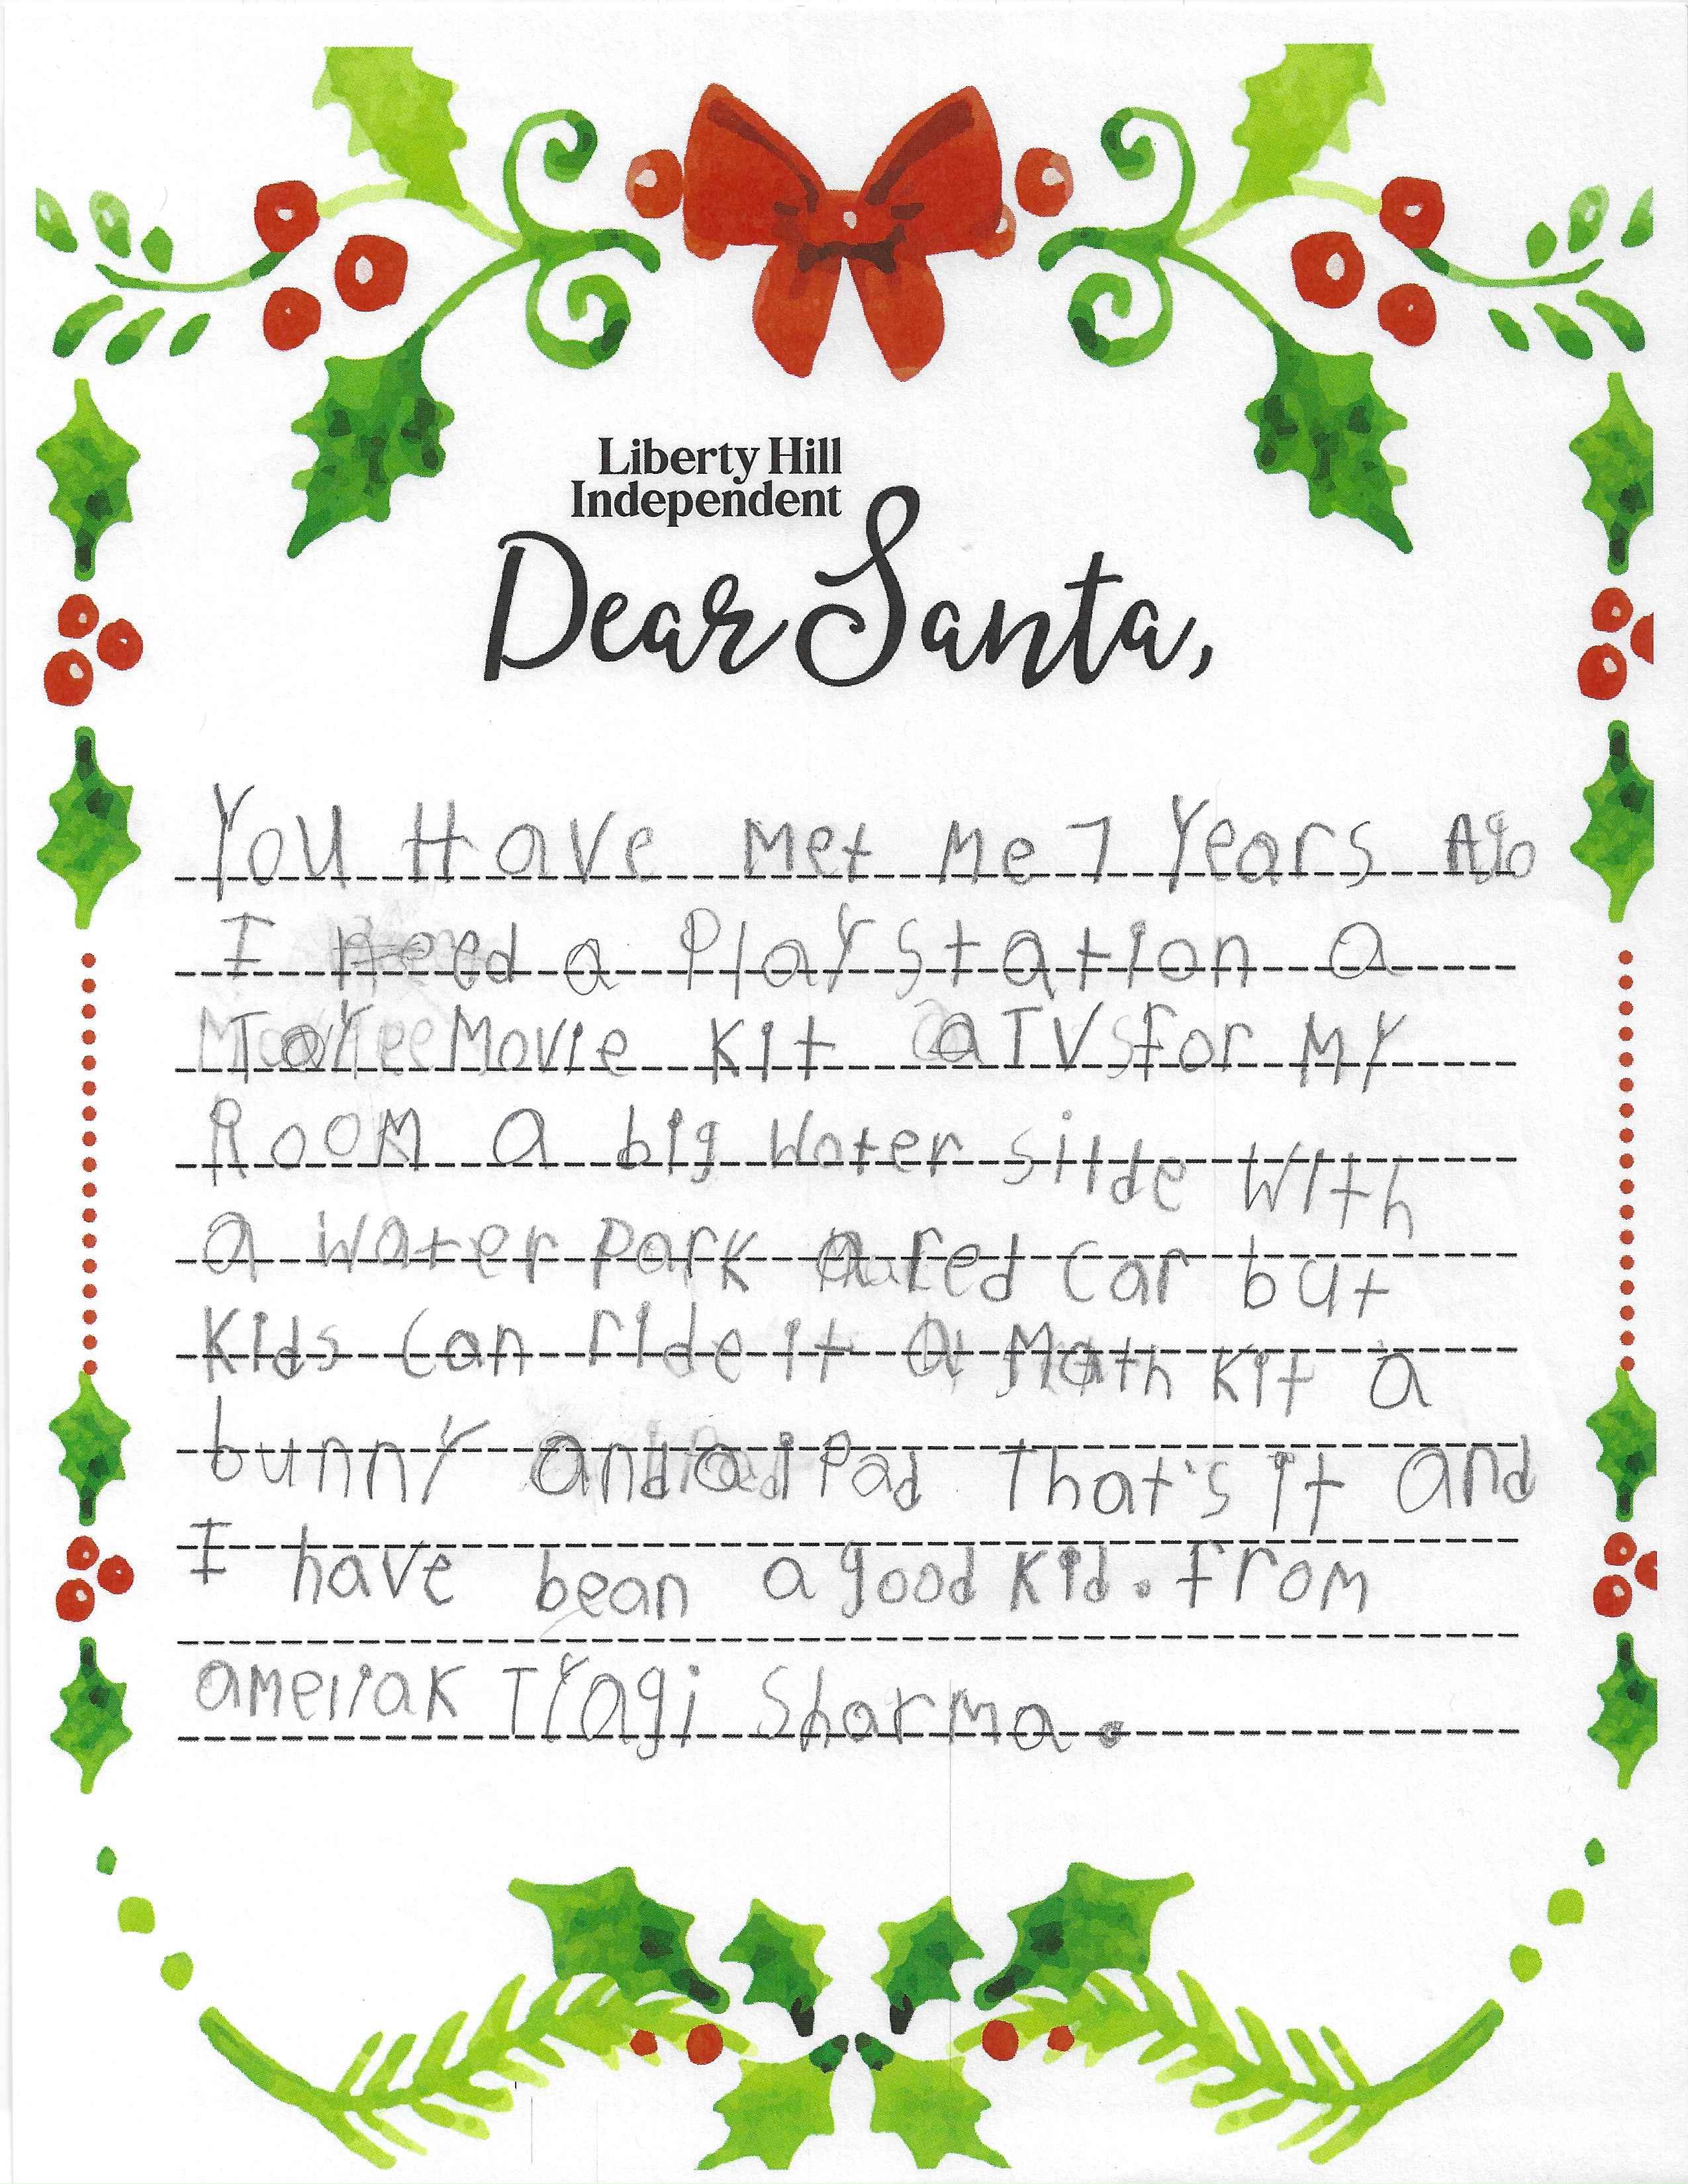 Liberty Hill
Independent
Dear Santa,
You Have Met Me 7 Years Ago
I need a PlaYStation a
ToY Movie Kit a TV for MY
Room a big Water silde With
a water Park a red Car but
Kids Can ride it a Math Kit a
bunnY and a iPad That's it and
I have bean a good Kid. From
ameliaK TYagi Sharma.